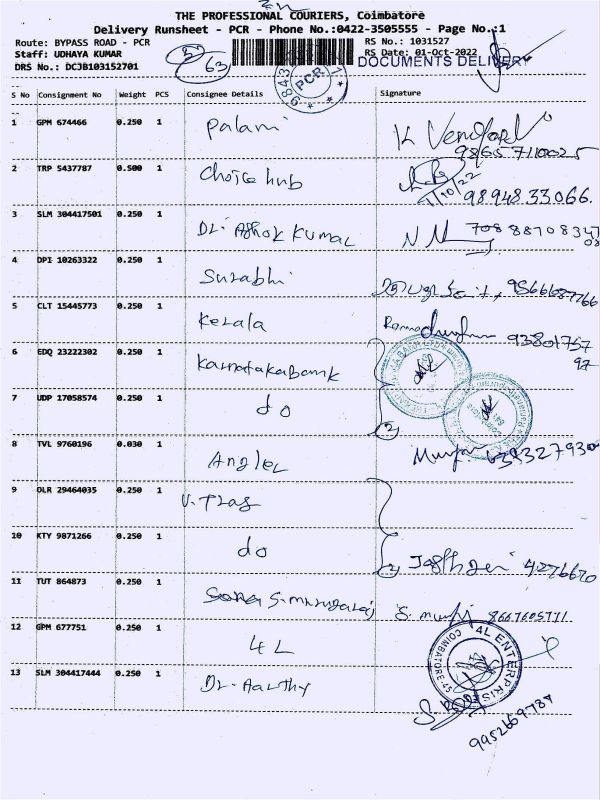 THE PROFESSIONAL COURIERS, Coimbatore
Delivery Runsheet - PCR - Phone No.:0422-3505555 - Page No.:1
Route: BYPASS ROAD - PCR
RS No.: 1031527
Staff: UDHAYA KUMAR
RS Date: 01-Oct-2022
DRS No.: DCJB103152701
63
DOCUMENTS DELIVERY
9843 PCR
S No Consignment No Weight PCS Consignee Details Signature
1 GPM 674466 0.250 1 Palani
98657110025
2 TRP 5437787 0.500 1 Choice hub
1/10/22 98.948.33.066.
3 SLM 304417501 0.250 1 Dr. Ashok Kumar
4 DPI 10263322 0.250 1 Surabhi
5 CLT 15445773 0.250 1 Kerala
93801757
97
6 EDQ 23222302 0.250 1 Karnataka Bank
7 UDP 17058574 0.250 1 do
2
8 TVL 9760196 0.030 1 Angler
9 OLR 29464035 0.250 1 V. Trag
10 KTY 9871266 0.250 1 do
2 4276670
11 TUT 864873 0.250 1 S. Murugaraj
12 GPM 677751 0.250 1 4L
4L ENTERPRISES COIMBATORE-45
13 SLM 304417444 0.250 1 Dr. Aarthy
9952669787